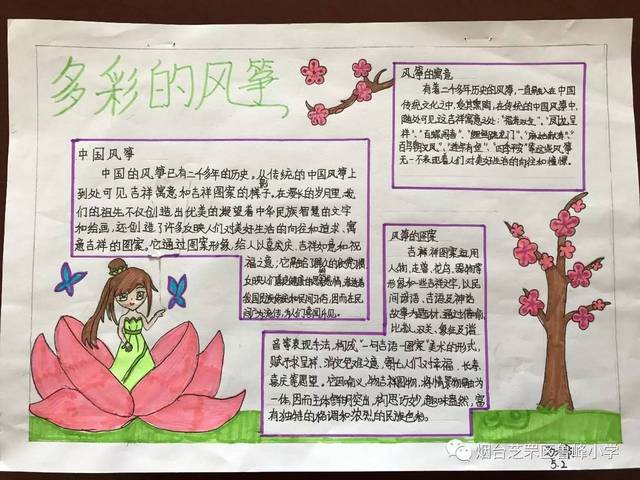 多彩的风筝
中国风筝
中国的风筝已有二千多年的历史。从传统的中国风筝上
到处可见吉祥寓意和吉祥图案的影子。在漫长的岁月里,我
们的祖先不仅创造出优美的凝聚着中华民族智慧的文字
和绘画,还创造了许多反映人们对美好生活的向往和追求、寓
意吉祥的图案。它通过图案形象,给人以喜庆、吉祥如意和祝
福之意;它融合了群众的欣赏习惯
反映人们
我国民族 和民间习俗,因而在民
间广为流传,为人们喜闻乐见。
风筝的寓意
有着二千多年历史的风筝,一直融入在中国
传统文化之中,受其熏陶,在传统的中国风筝中,
随处可见这吉祥寓意之处:"福寿双全"、"龙凤呈
祥"、"百蝶闹春"、"鲤鱼跳龙门"、"麻姑献寿"、
"百鸟朝凤"、"连年有鱼"、"四季平安"等这些风筝
无一不表现着人们对美好生活的向往和憧憬。
风筝的图案
吉祥图案运用
人物、走兽、花鸟、器物等
形象和一些吉祥文字,以民
间谚语、吉语及神话
故事为题材,通过借喻、
比拟、双关、象征及谐
音等表现手法,构成"一句吉语一图案"美术的形式,
赋予求吉祥、消灾免难之意,寄托人们对幸福、长寿、
喜庆等愿望。它因物喻义、物吉祥图物,将情景物融为
一体,因而主体鲜明突出,构思巧妙,趣味盎然,富
有独特的格调和浓烈的民族色彩。
5.2
烟台芝罘区鲁峰小学